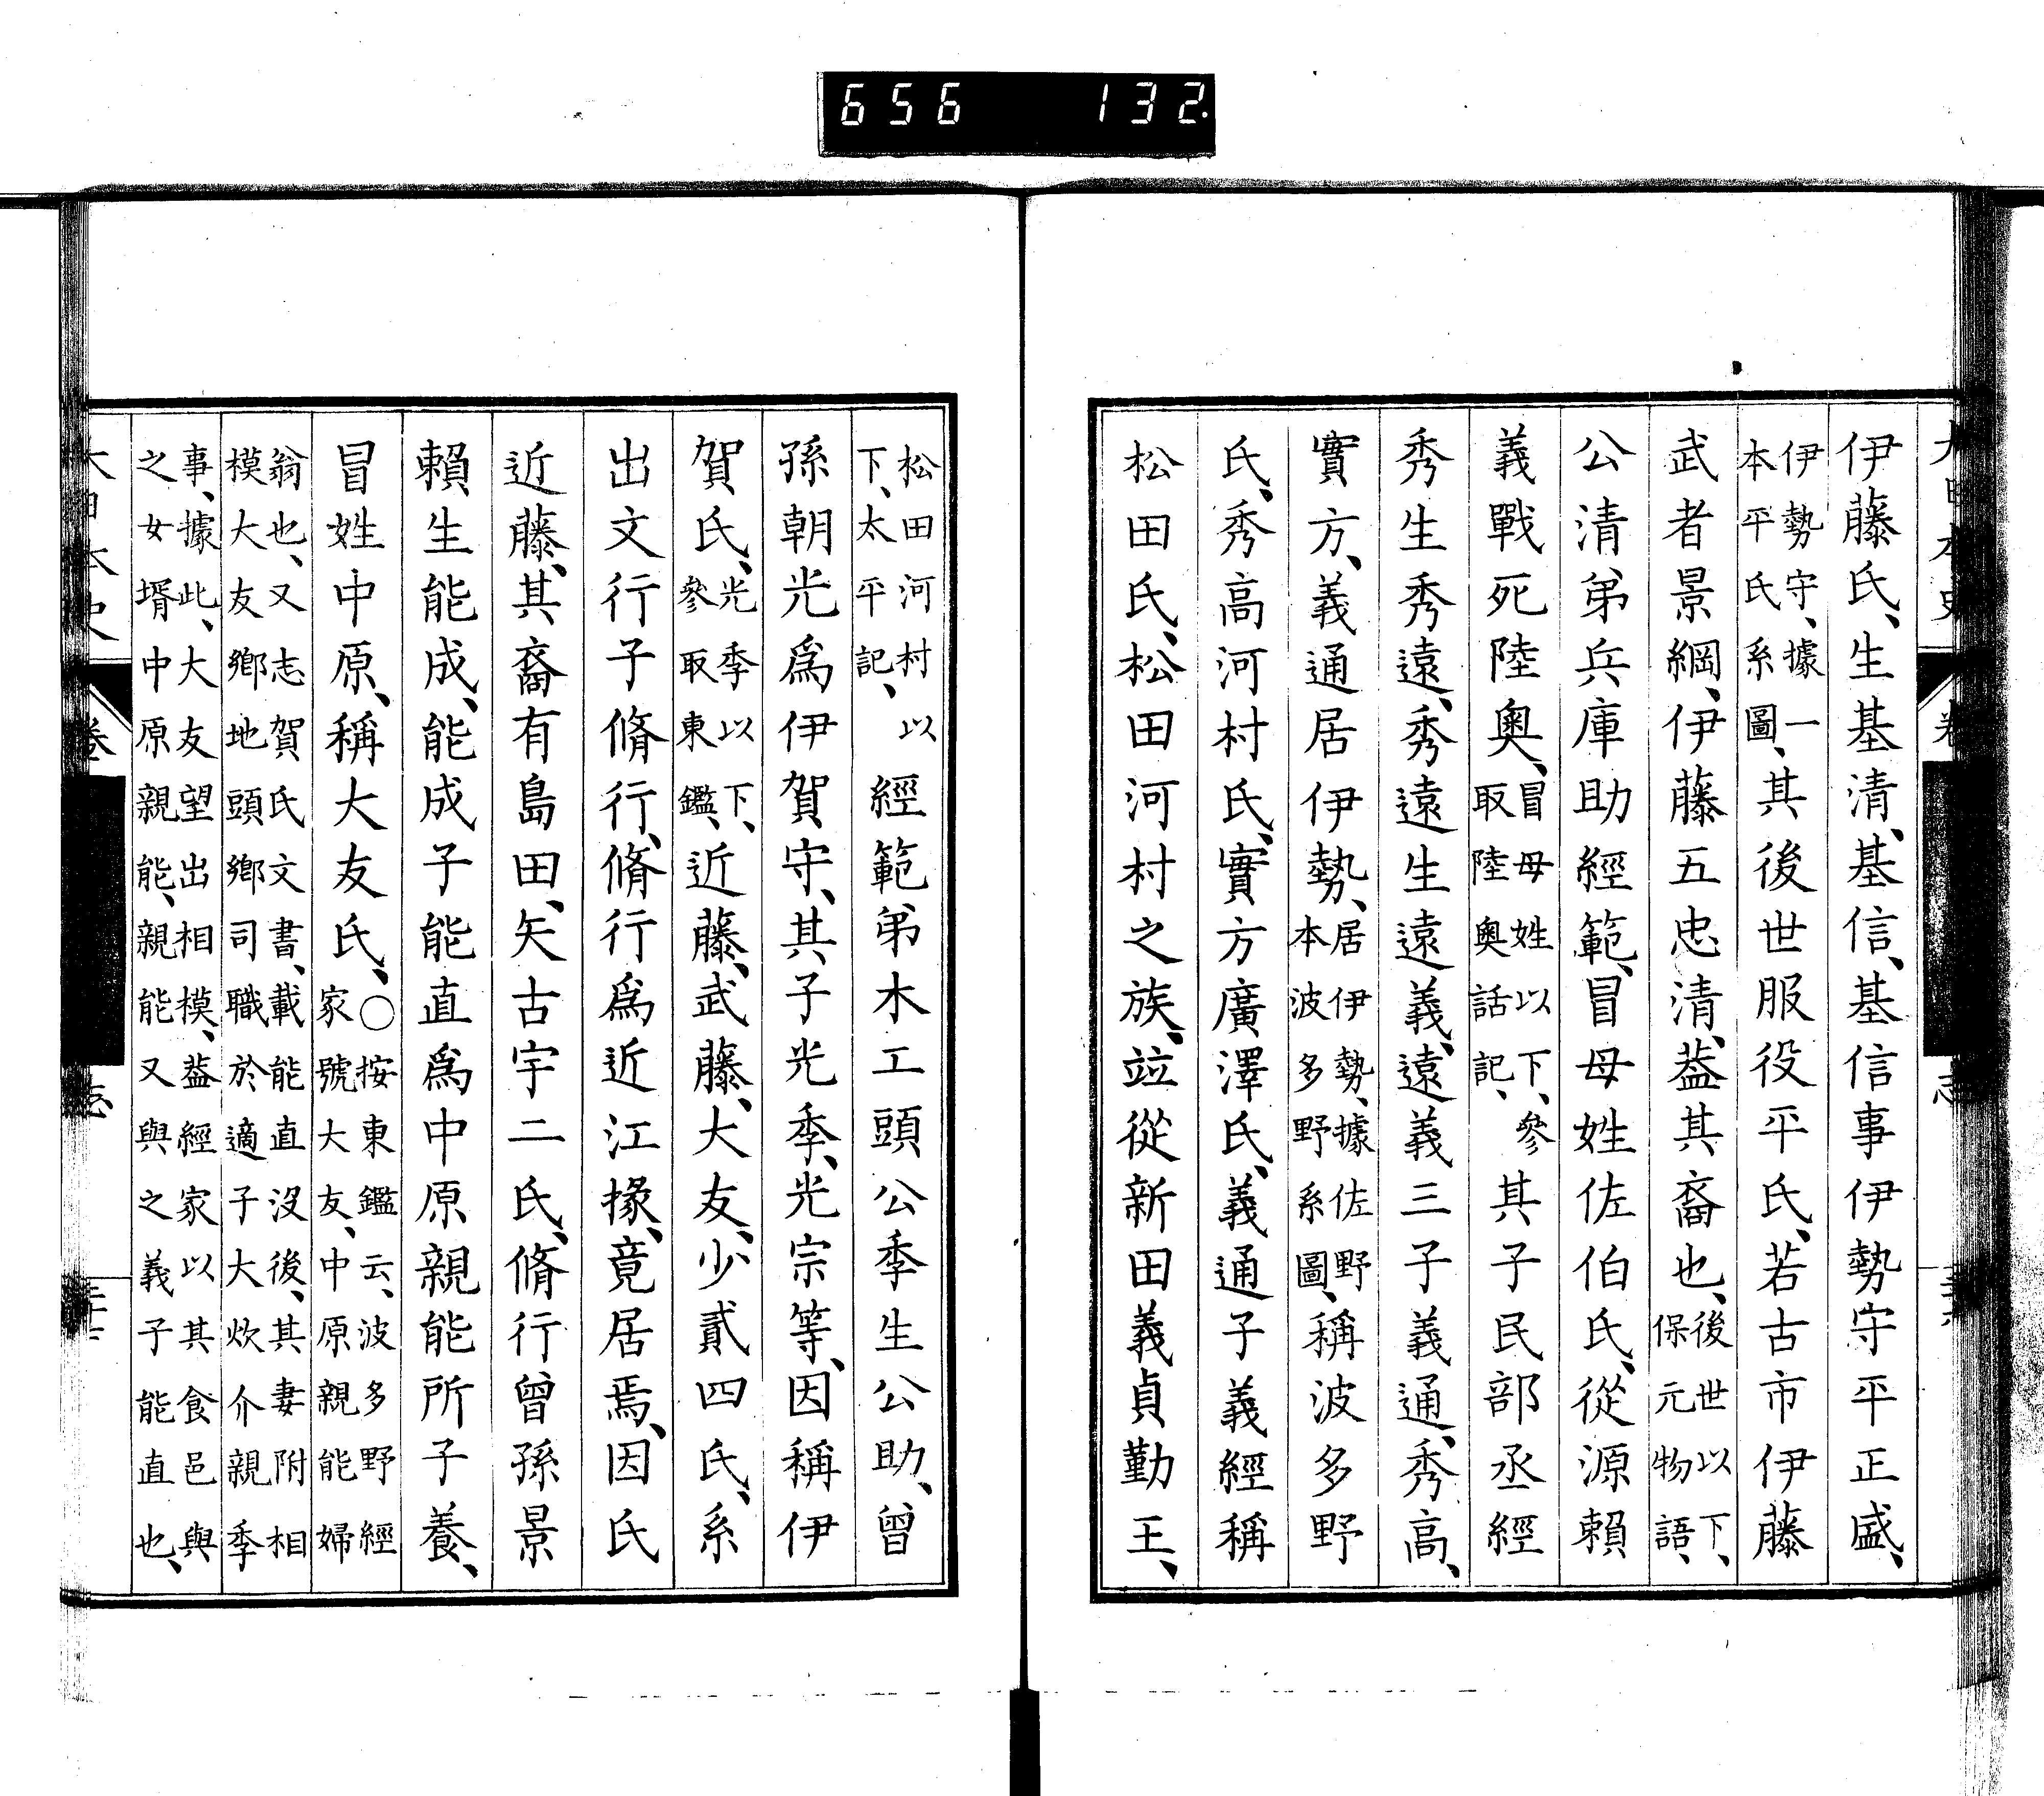 656 132.
伊藤氏、生基清、基信、基信事伊勢守平正盛、
伊勢守、據一
本平氏系圖、
其後世服役平氏、若古市伊藤
武者景綱、伊藤五忠清、葢其裔也、
後世以下、
保元物語、
公清弟兵庫助經範、冒母姓佐伯氏、從源賴
義戰死陸奧、
冒母姓以下、參
取陸奧話記、
其子民部丞經
秀生秀遠、秀遠生遠義、遠義三子義通、秀高、
實方、義通居伊勢、
居伊勢、據佐野
本波多野系圖、
稱波多野
氏、秀高河村氏、實方廣澤氏、義通子義經稱
松田氏、松田河村之族、竝從新田義貞勤王、
松田河村以
下、太平記、
經範弟木工頭公季生公助、曾
孫朝光爲伊賀守、其子光季、光宗等、因稱伊
賀氏、
光季以下、
參取東鑑、
近藤、武藤、大友、少貳四氏、系
出文行子脩行、脩行爲近江掾、竟居焉、因氏
近藤、其裔有島田、矢古宇二氏、脩行曾孫景
賴生能成、能成子能直爲中原親能所子養、
冒姓中原、稱大友氏、
○按東鑑云、波多野經
家號大友、中原親能婦
翁也、又志賀氏文書、載能直沒後、其妻附相
模大友鄉地頭鄉司職於適子大炊介親季
事、據此、大友望出相模、葢經家以其食邑與
之女壻中原親能、親能又與之義子能直也、